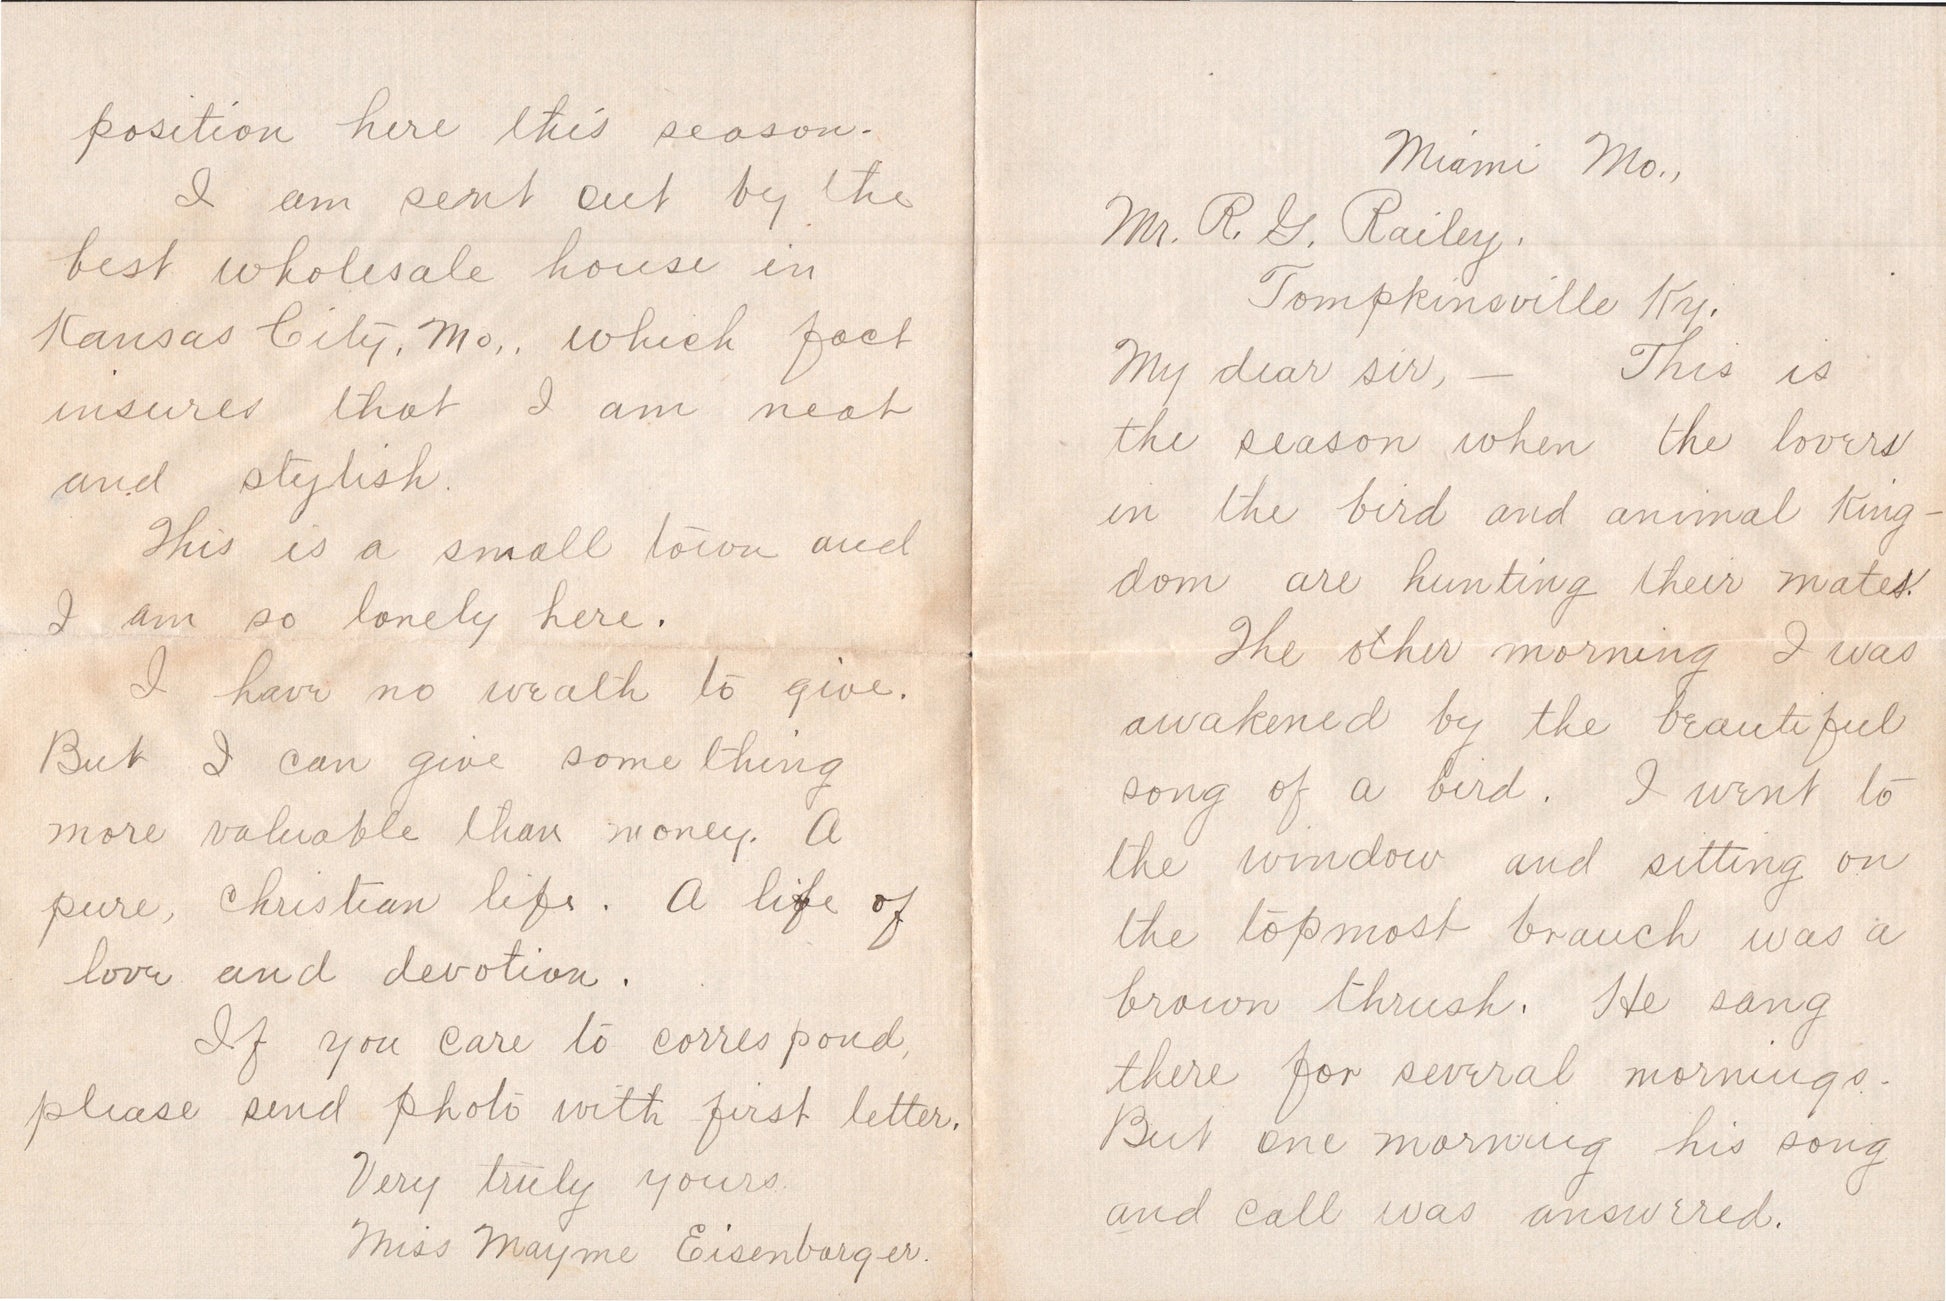 Miami Mo.,
Mr. R. G. Railey.
Tompkinsville Ky.
My dear sir, — This is
the season when the lovers
in the bird and animal King-
dom are hunting their mates.
The other morning I was
awakened by the beautiful
song of a bird. I went to
the window and sitting on
the topmost branch was a
brown thrush. He sang
there for several mornings.
But one morning his song
and call was answered.
position here this season.
I am sent out by the
best wholesale house in
Kansas City, Mo., which fact
insures that I am neat
and stylish.
This is a small town and
I am so lonely here.
I have no wealth to give.
But I can give some thing
more valuable than money. A
pure, christian life. A life of
love and devotion.
If you care to correspond,
please send photo with first letter.
Very truly yours.
Miss Mayme Eisenbarger.